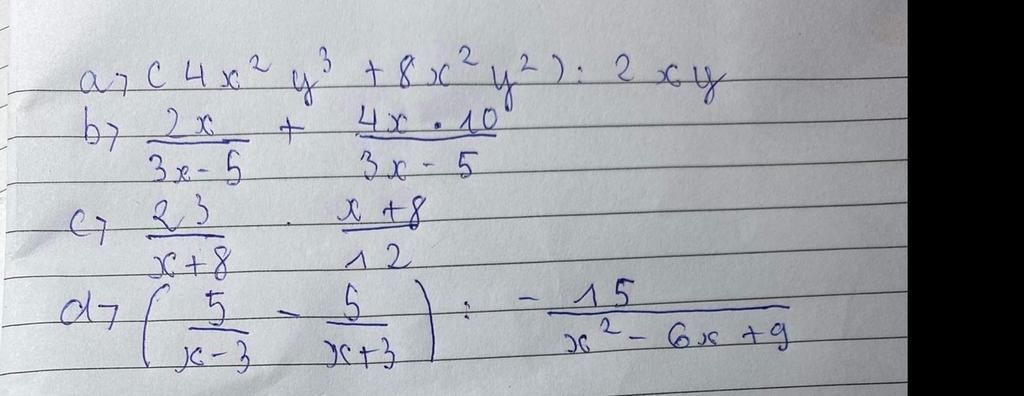 a> (4x² y³ + 8x² y²) : 2xy
b> 2x/(3x - 5) + (4x . 10)/(3x - 5)
c> 23/(x + 8) . (x + 8)/12
d> (5/(x - 3) - 5/(x + 3)) : - 15/(x² - 6x + 9)